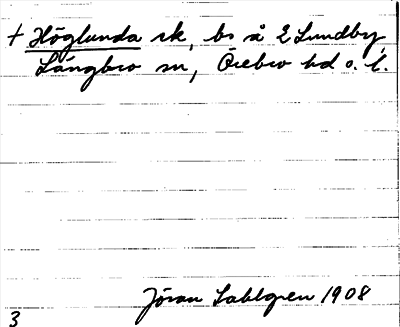 + Höglunda sk, bs å E Lundby
Längbro sn, Örebro hd o. l.
Jöran Sahlgren 1908
3